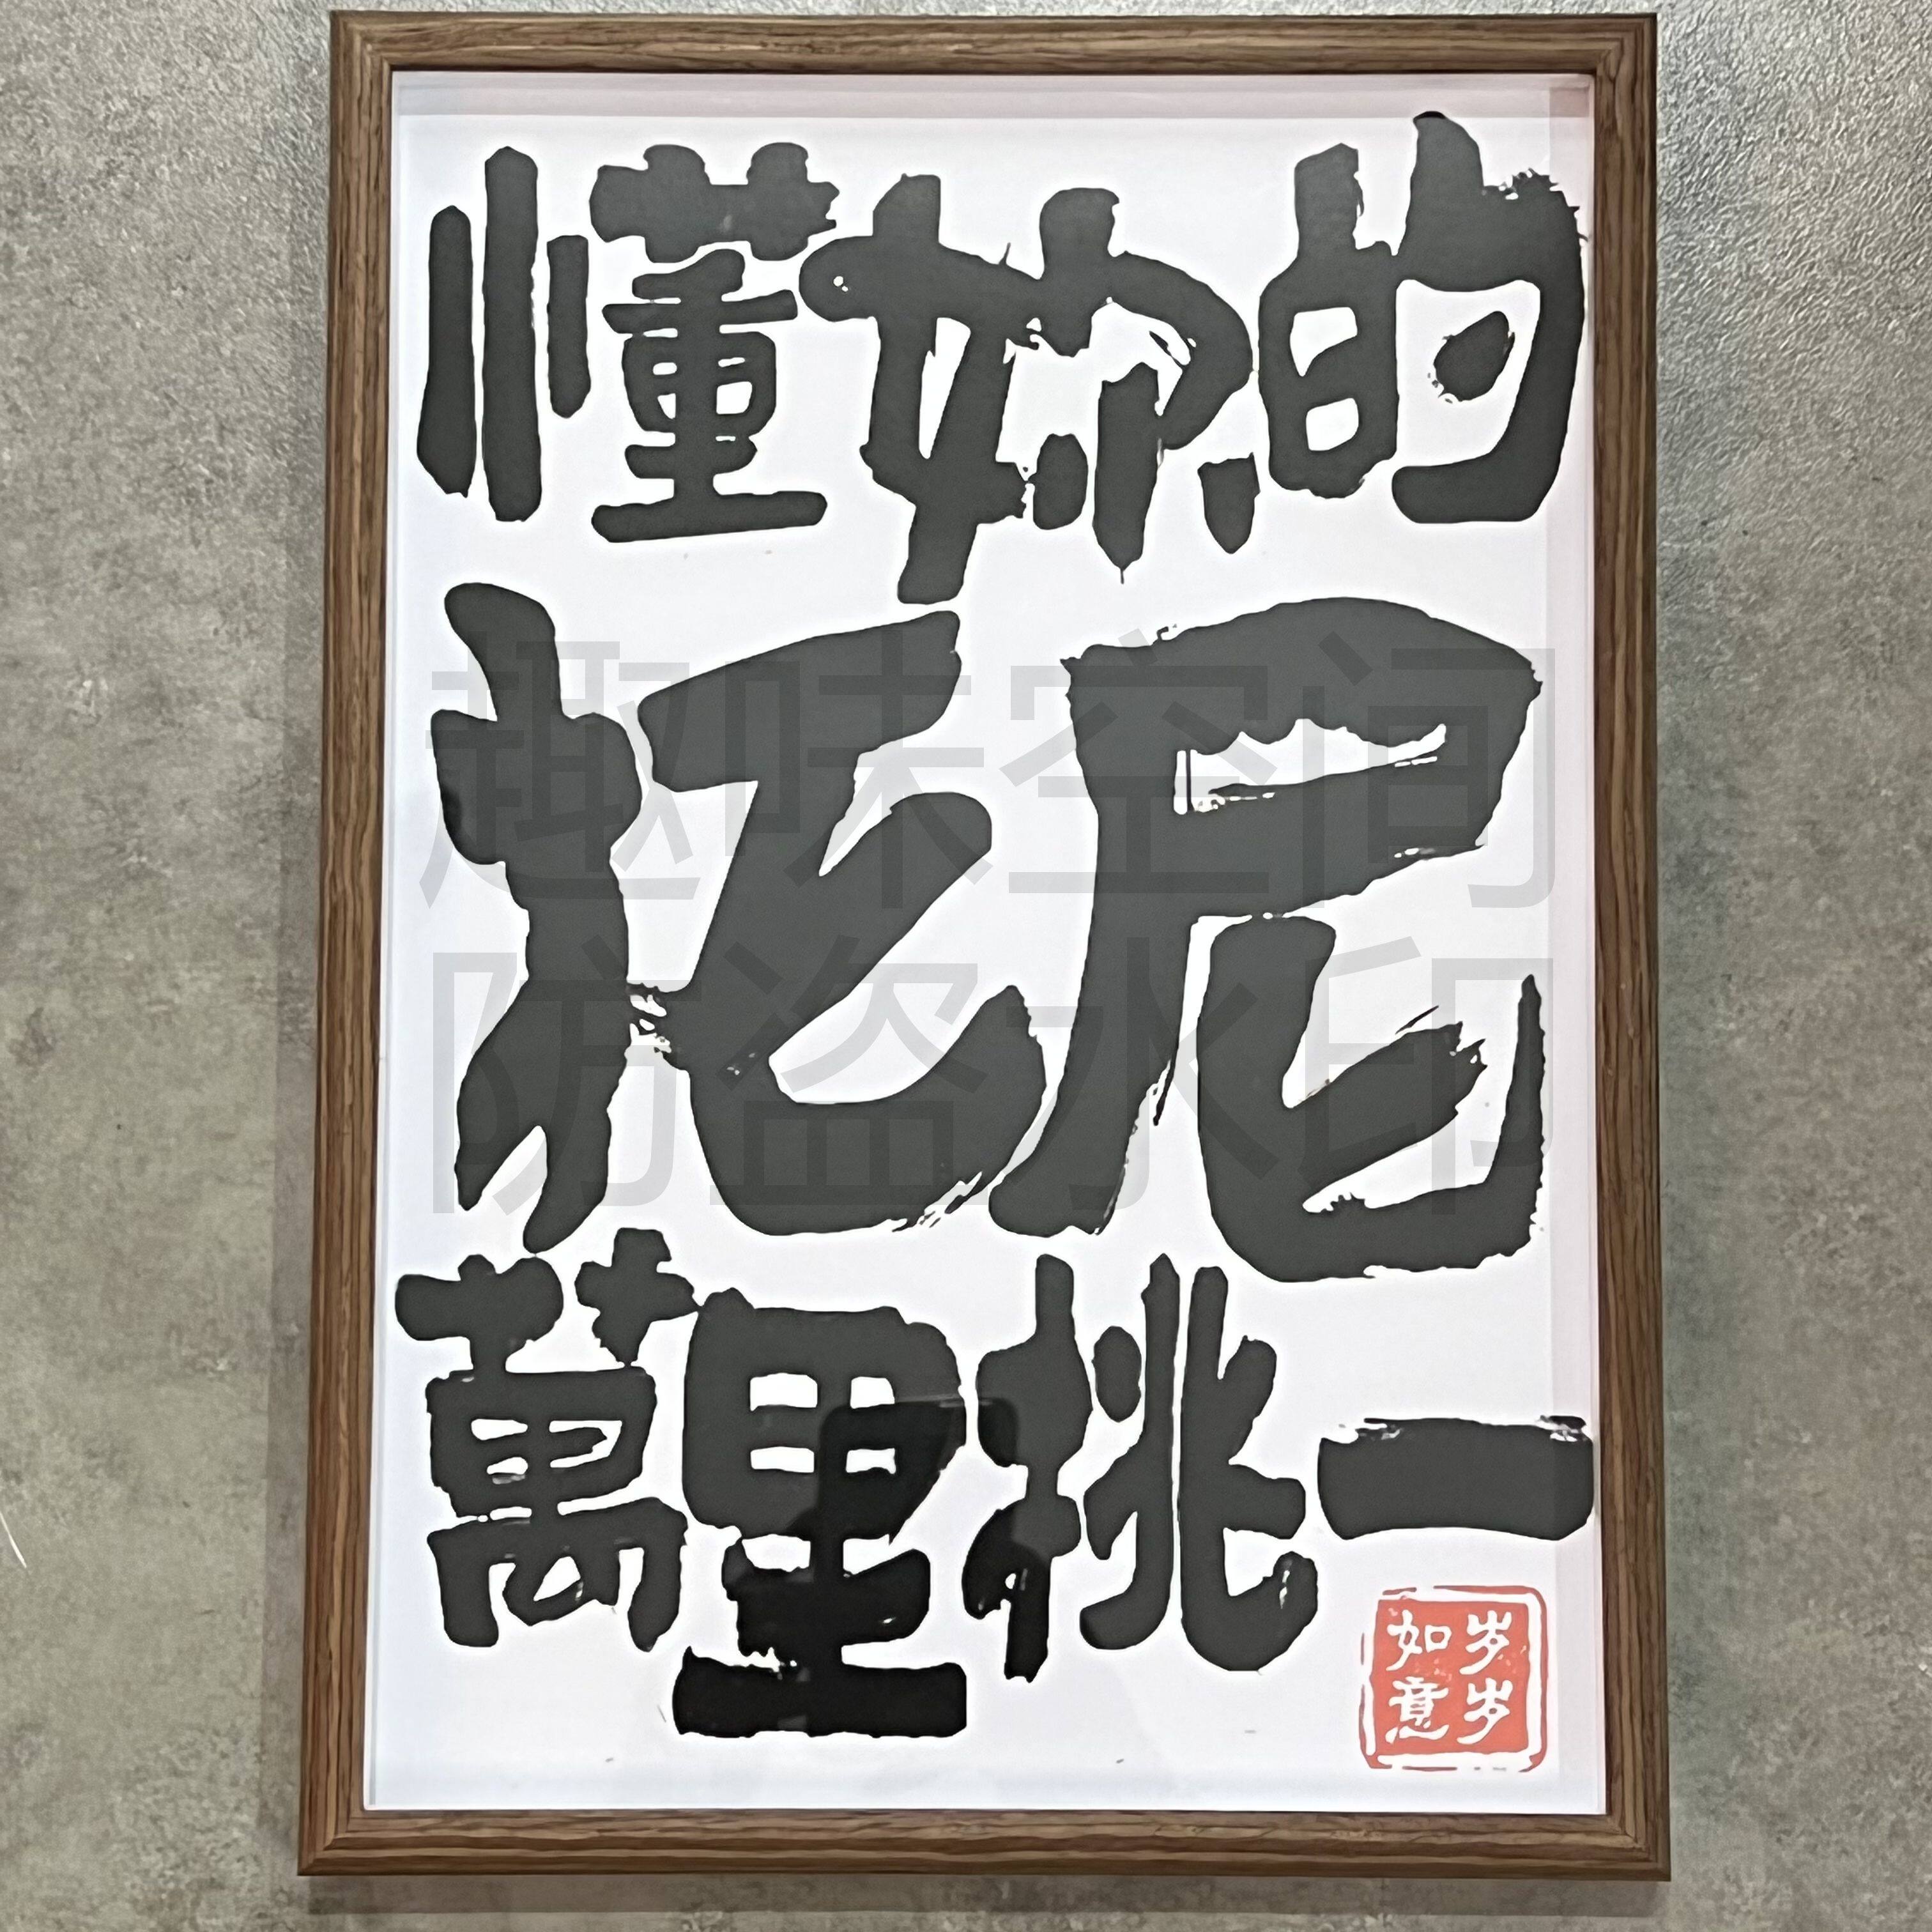 懂妳的
托尼
萬里挑一
岁岁
如意
趣味空间
防盗水印